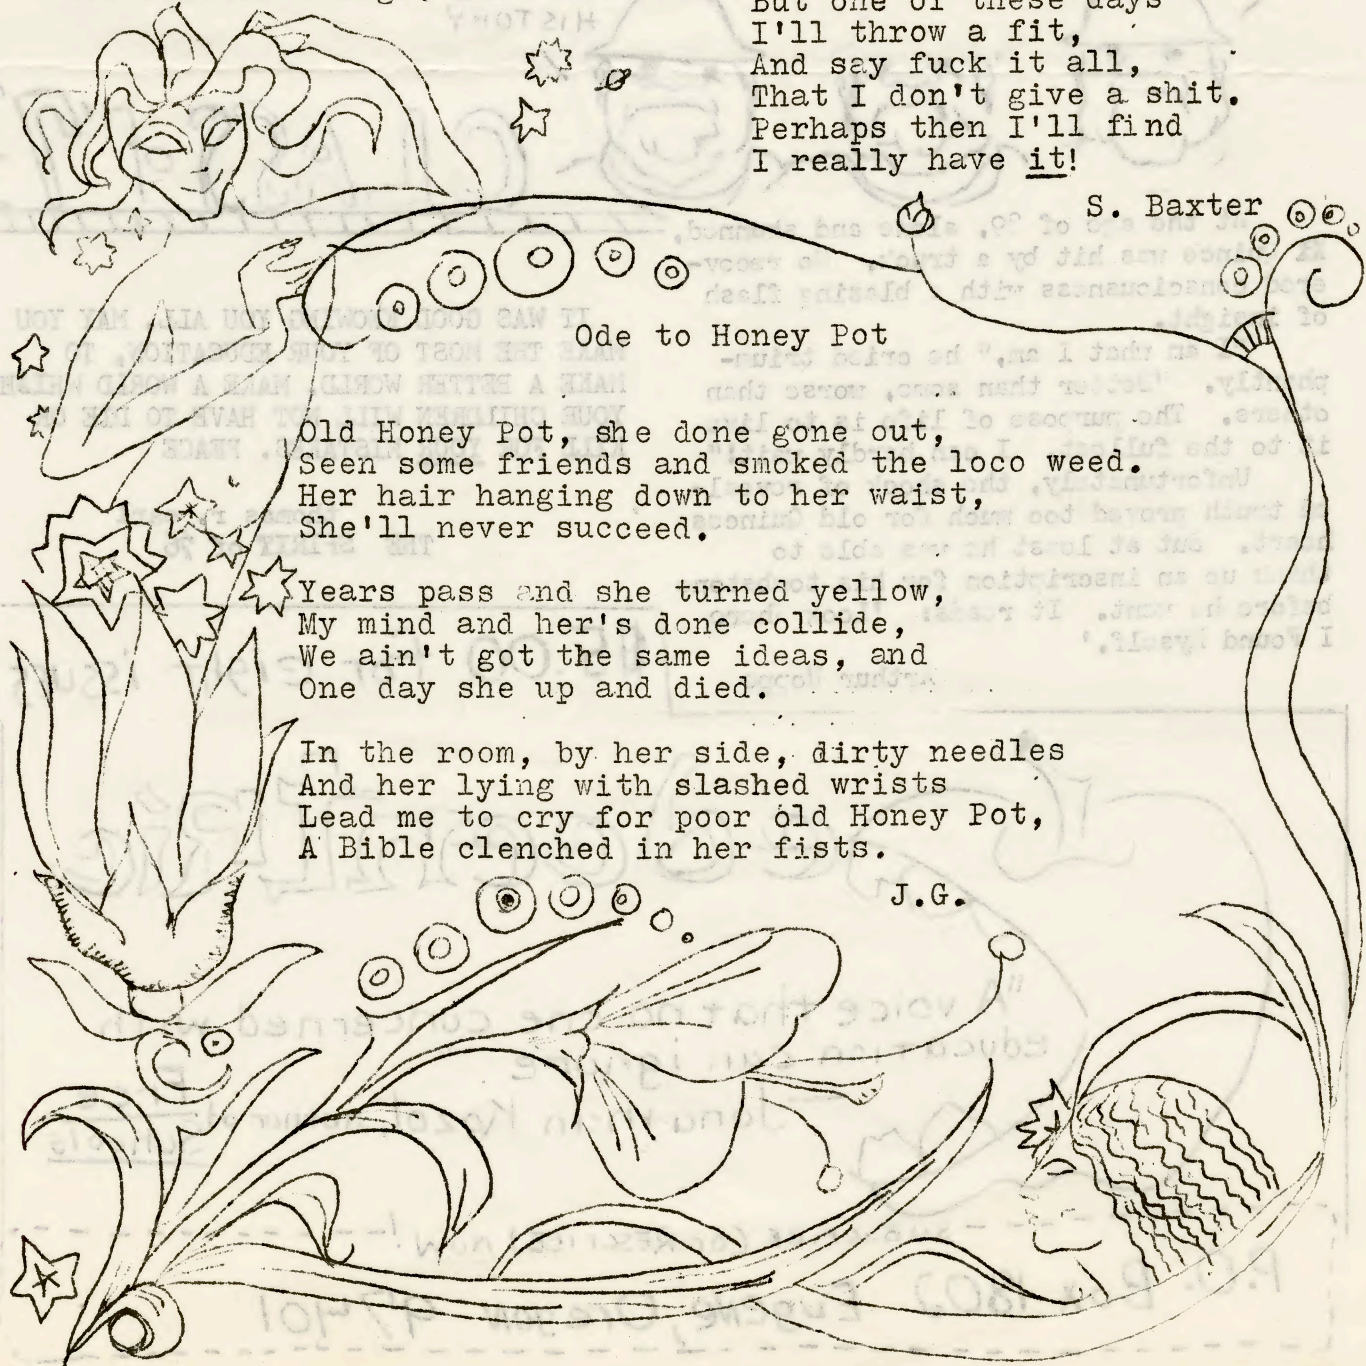 But one of these days
I'll throw a fit,
And say fuck it all,
That I don't give a shit.
Perhaps then I'll find
I really have it!
S. Baxter
Ode to Honey Pot
Old Honey Pot, she done gone out,
Seen some friends and smoked the loco weed.
Her hair hanging down to her waist,
She'll never succeed.
Years pass and she turned yellow,
My mind and her's done collide,
We ain't got the same ideas, and
One day she up and died.
In the room, by her side, dirty needles
And her lying with slashed wrists
Lead me to cry for poor old Honey Pot,
A Bible clenched in her fists.
J.G.